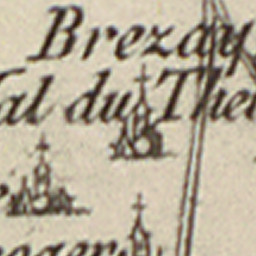 Brezay
al du The
oger